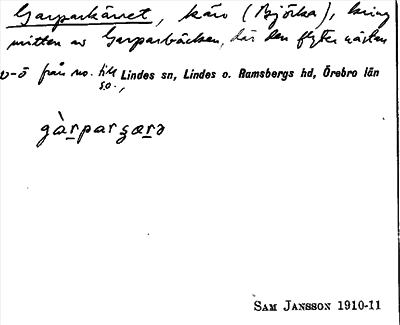 Garparkärret, kärr (Björka), kring
mitten av Garparbäcken, där den flyter nästan
v-ö från no. till
s.o., Lindes sn, Lindes o. Ramsbergs hd, Örebro län
gàrparʂærə
SAM JANSSON 1910-11